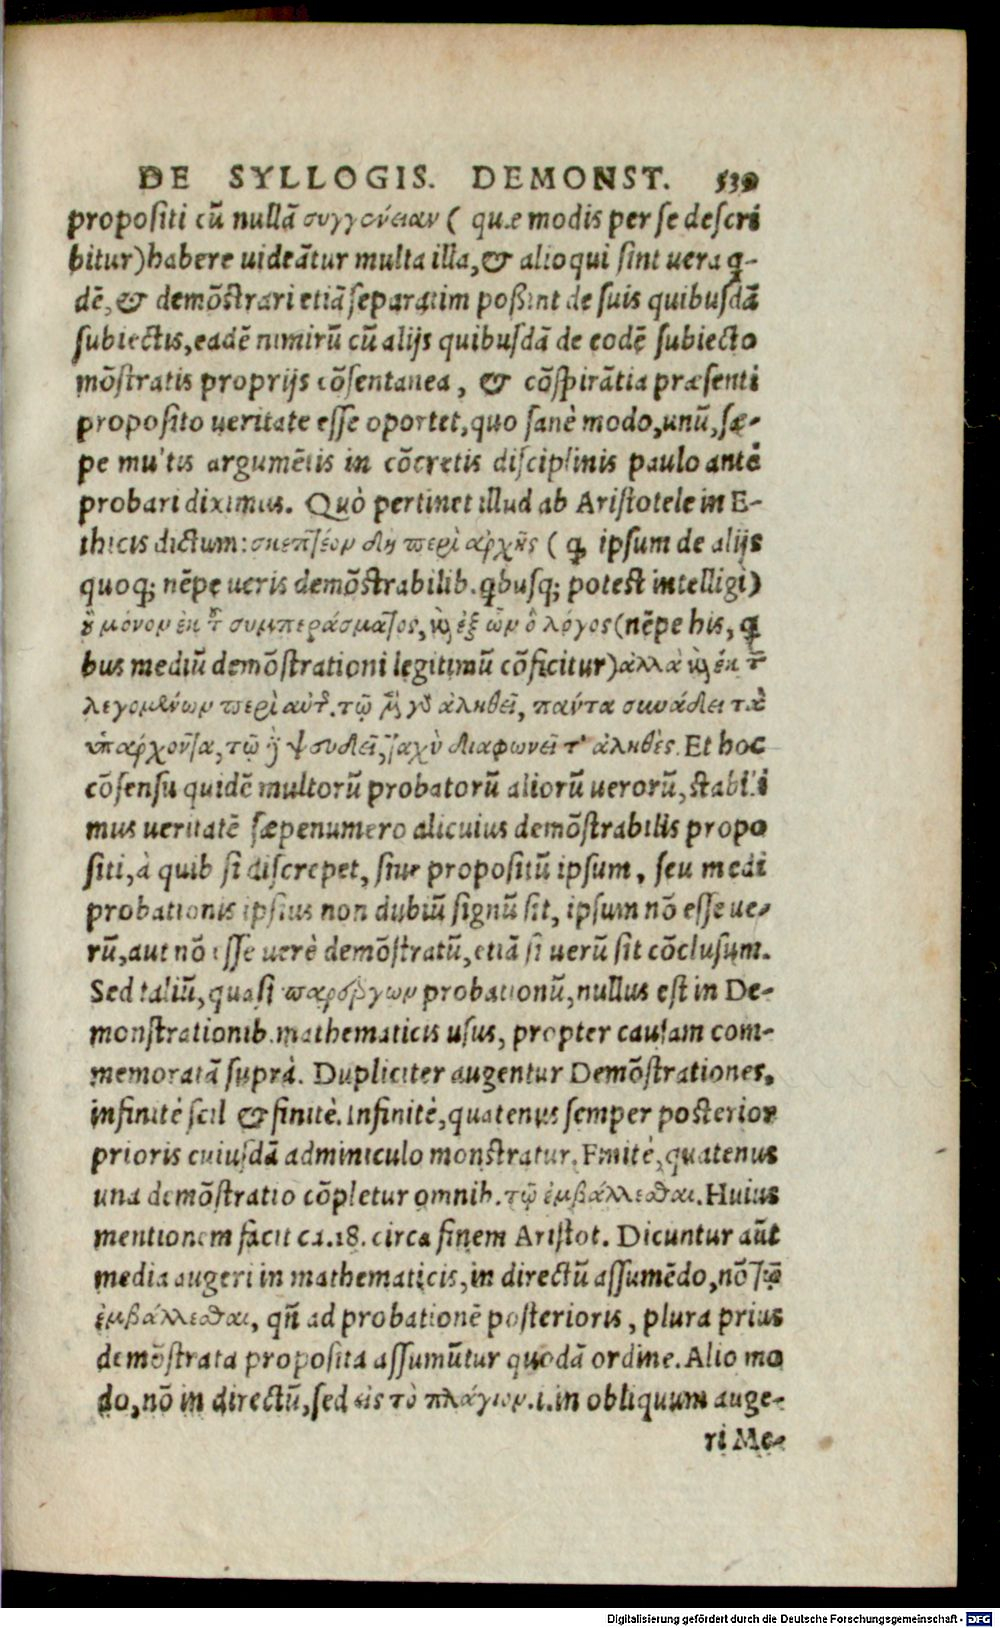 DE SYLLOGIS. DEMONST. 539
propositi cū nullā συγγένειαν ( quæ modis per se descri
bitur) habere uideātur multa illa, & alioqui sint uera q̄-
dē, & demōstrari etiā separatim poßint de suis quibusdā
subiectis, eadē nimirū cū alijs quibusdā de eodē subiecto
mōstratis proprijs cōsentanea, & cōspirātia præsenti
proposito ueritate esse oportet, quo sanè modo, unū, sæ-
pe multis argumētis in cōcretis disciplinis paulo ante
probari diximus. Quò pertinet illud ab Aristotele in E-
thicis dictum: σκεπτέον δὴ περὶ ἀρχῆς ( q̄ ipsum de alijs
quoq; nēpe ueris demōstrabilib. q̄busq; potest intelligi)
οὐ μόνον ἐκ τοῦ συμπεράσματος, καὶ ἐξ ὧν ὁ λόγος (nēpe his, q̄
bus mediū demōstrationi legitimū cōficitur) ἀλλὰ καὶ ἐκ τῶν
λεγομένων περὶ αὐτοῦ. τῷ μὲν γὰρ ἀληθεῖ, πάντα συνάδει τὰ
ὑπάρχοντα, τῷ δὲ ψευδεῖ, ταχὺ διαφωνεῖ τ' ἀληθὲς. Et hoc
cōsensu quidē multorū probatorū aliorū uerorū, stabili
mus ueritatē sæpenumero alicuius demōstrabilis propo
siti, à quib si discrepet, siue propositū ipsum, seu medi
probationis ipsius non dubiū signū sit, ipsum nō esse ue-
rū, aut nō esse uerè demōstratū, etiā si uerū sit cōclusum.
Sed taliū, quasi παρέργων probationū, nullus est in De-
monstrationib. mathematicis usus, propter causam com-
memoratā suprà. Dupliciter augentur Demōstrationes,
infinitè scil & finitè. Infinitè, quatenus semper posterior
prioris cuiusdā adminiculo monstratur. Finitè, quatenus
una demōstratio cōpletur omnib. τῷ ἐμβάλλεσθαι. Huius
mentionem facit ca. 18. circa finem Aristot. Dicuntur aūt
media augeri in mathematicis, in directū assumēdo, nō τῷ
ἐμβάλλεσθαι, qñ ad probationē posterioris, plura prius
demōstrata proposita assumūtur quodā ordine. Alio mo
do, nō in directū, sed εἰς τὸ πλάγιον. i. in obliquum auge-
ri Me-
Digitalisierung gefördert durch die Deutsche Forschungsgemeinschaft - DFG